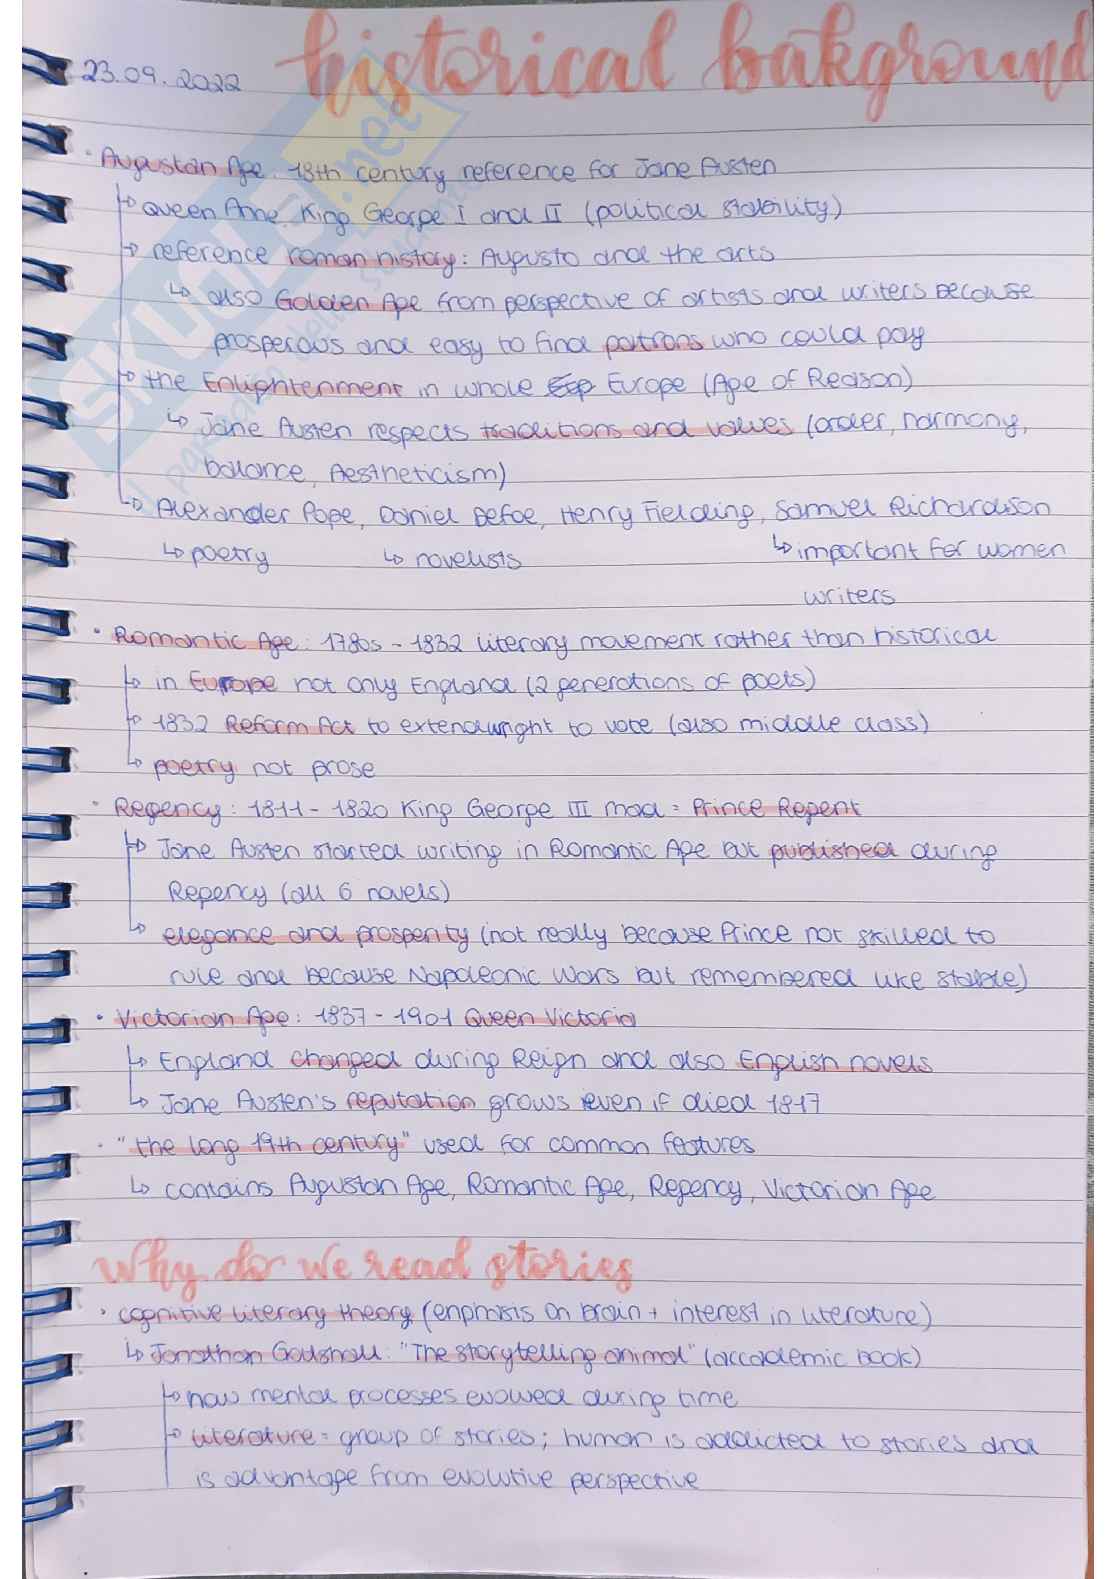 historical bakground
23.09.2022
• Augustan Age: 18th century reference for Jane Austen
↳ Queen Anne, King George I and II (political stability)
↳ reference roman history: Augusto and the arts
↳ also Golden Age from perspective of artists and writers because
prosperous and easy to find patrons who could pay
↳ the Enlightenment in whole Europe (Age of Reason)
↳ Jane Austen respects traditions and values (order, harmony,
balance, Aestheticism)
↳ Alexander Pope, Daniel Defoe, Henry Fielding, Samuel Richardson
↳ poetry ↳ novelists ↳ important for women
writers
• Romantic Age: 1780s - 1832 literary movement rather than historical
↳ in Europe not only England (2 generations of poets)
↳ 1832 Reform Act to extend right to vote (also middle class)
↳ poetry not prose
• Regency: 1811 - 1820 King George III mad = Prince Regent
↳ Jane Austen started writing in Romantic Age but published during
Regency (all 6 novels)
↳ elegance and prosperity (not really because Prince not skilled to
rule and because Napoleonic Wars but remembered like stable)
• Victorian Age: 1837 - 1901 Queen Victoria
↳ England changed during Reign and also English novels
↳ Jane Austen's reputation grows even if died 1817
• "the long 19th century" used for common features
↳ contains Augustan Age, Romantic Age, Regency, Victorian Age
Why do we read stories
• cognitive literary theory (enphasis on brain + interest in literature)
↳ Jonathan Godshall: "The storytelling animal" (accademic book)
↳ how mental processes evolved during time
↳ literature = group of stories; human is addicted to stories and
is advantage from evolutive perspective
SKUOLA.net